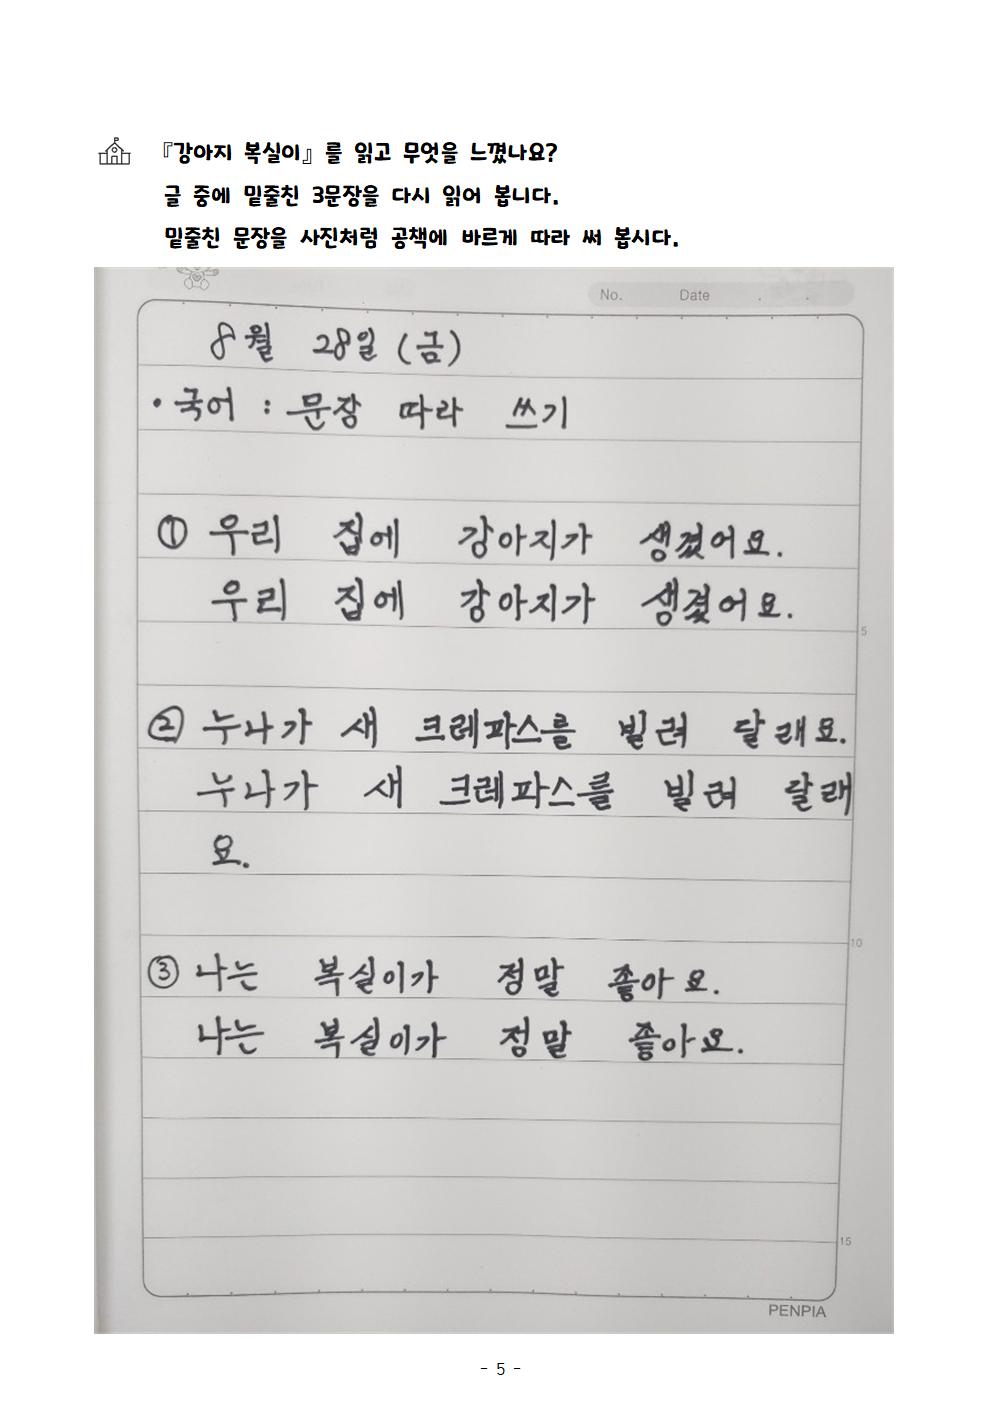 『강아지 복실이』 를 읽고 무엇을 느꼈나요?
글 중에 밑줄친 3문장을 다시 읽어 봅니다.
밑줄친 문장을 사진처럼 공책에 바르게 따라 써 봅시다.
No. Date . .
8월 28일 (금)
• 국어 : 문장 따라 쓰기
① 우리 집에 강아지가 생겼어요.
우리 집에 강아지가 생겼어요.
5
② 누나가 새 크레파스를 빌려 달래요.
누나가 새 크레파스를 빌려 달래
요.
10
③ 나는 복실이가 정말 좋아요.
나는 복실이가 정말 좋아요.
15
PENPIA
- 5 -